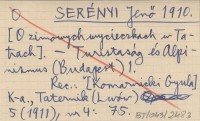 SERÉNYI Jenő 1910.
[O zimowych wycieczkach w Ta-
trach]. — Turistaság és Alpi-
nismus (Budapest) 1.
Rec.: [Komarnicki Gyula]
K-a., Taternik (Lwów)
5 (1911), nr 4: 75.